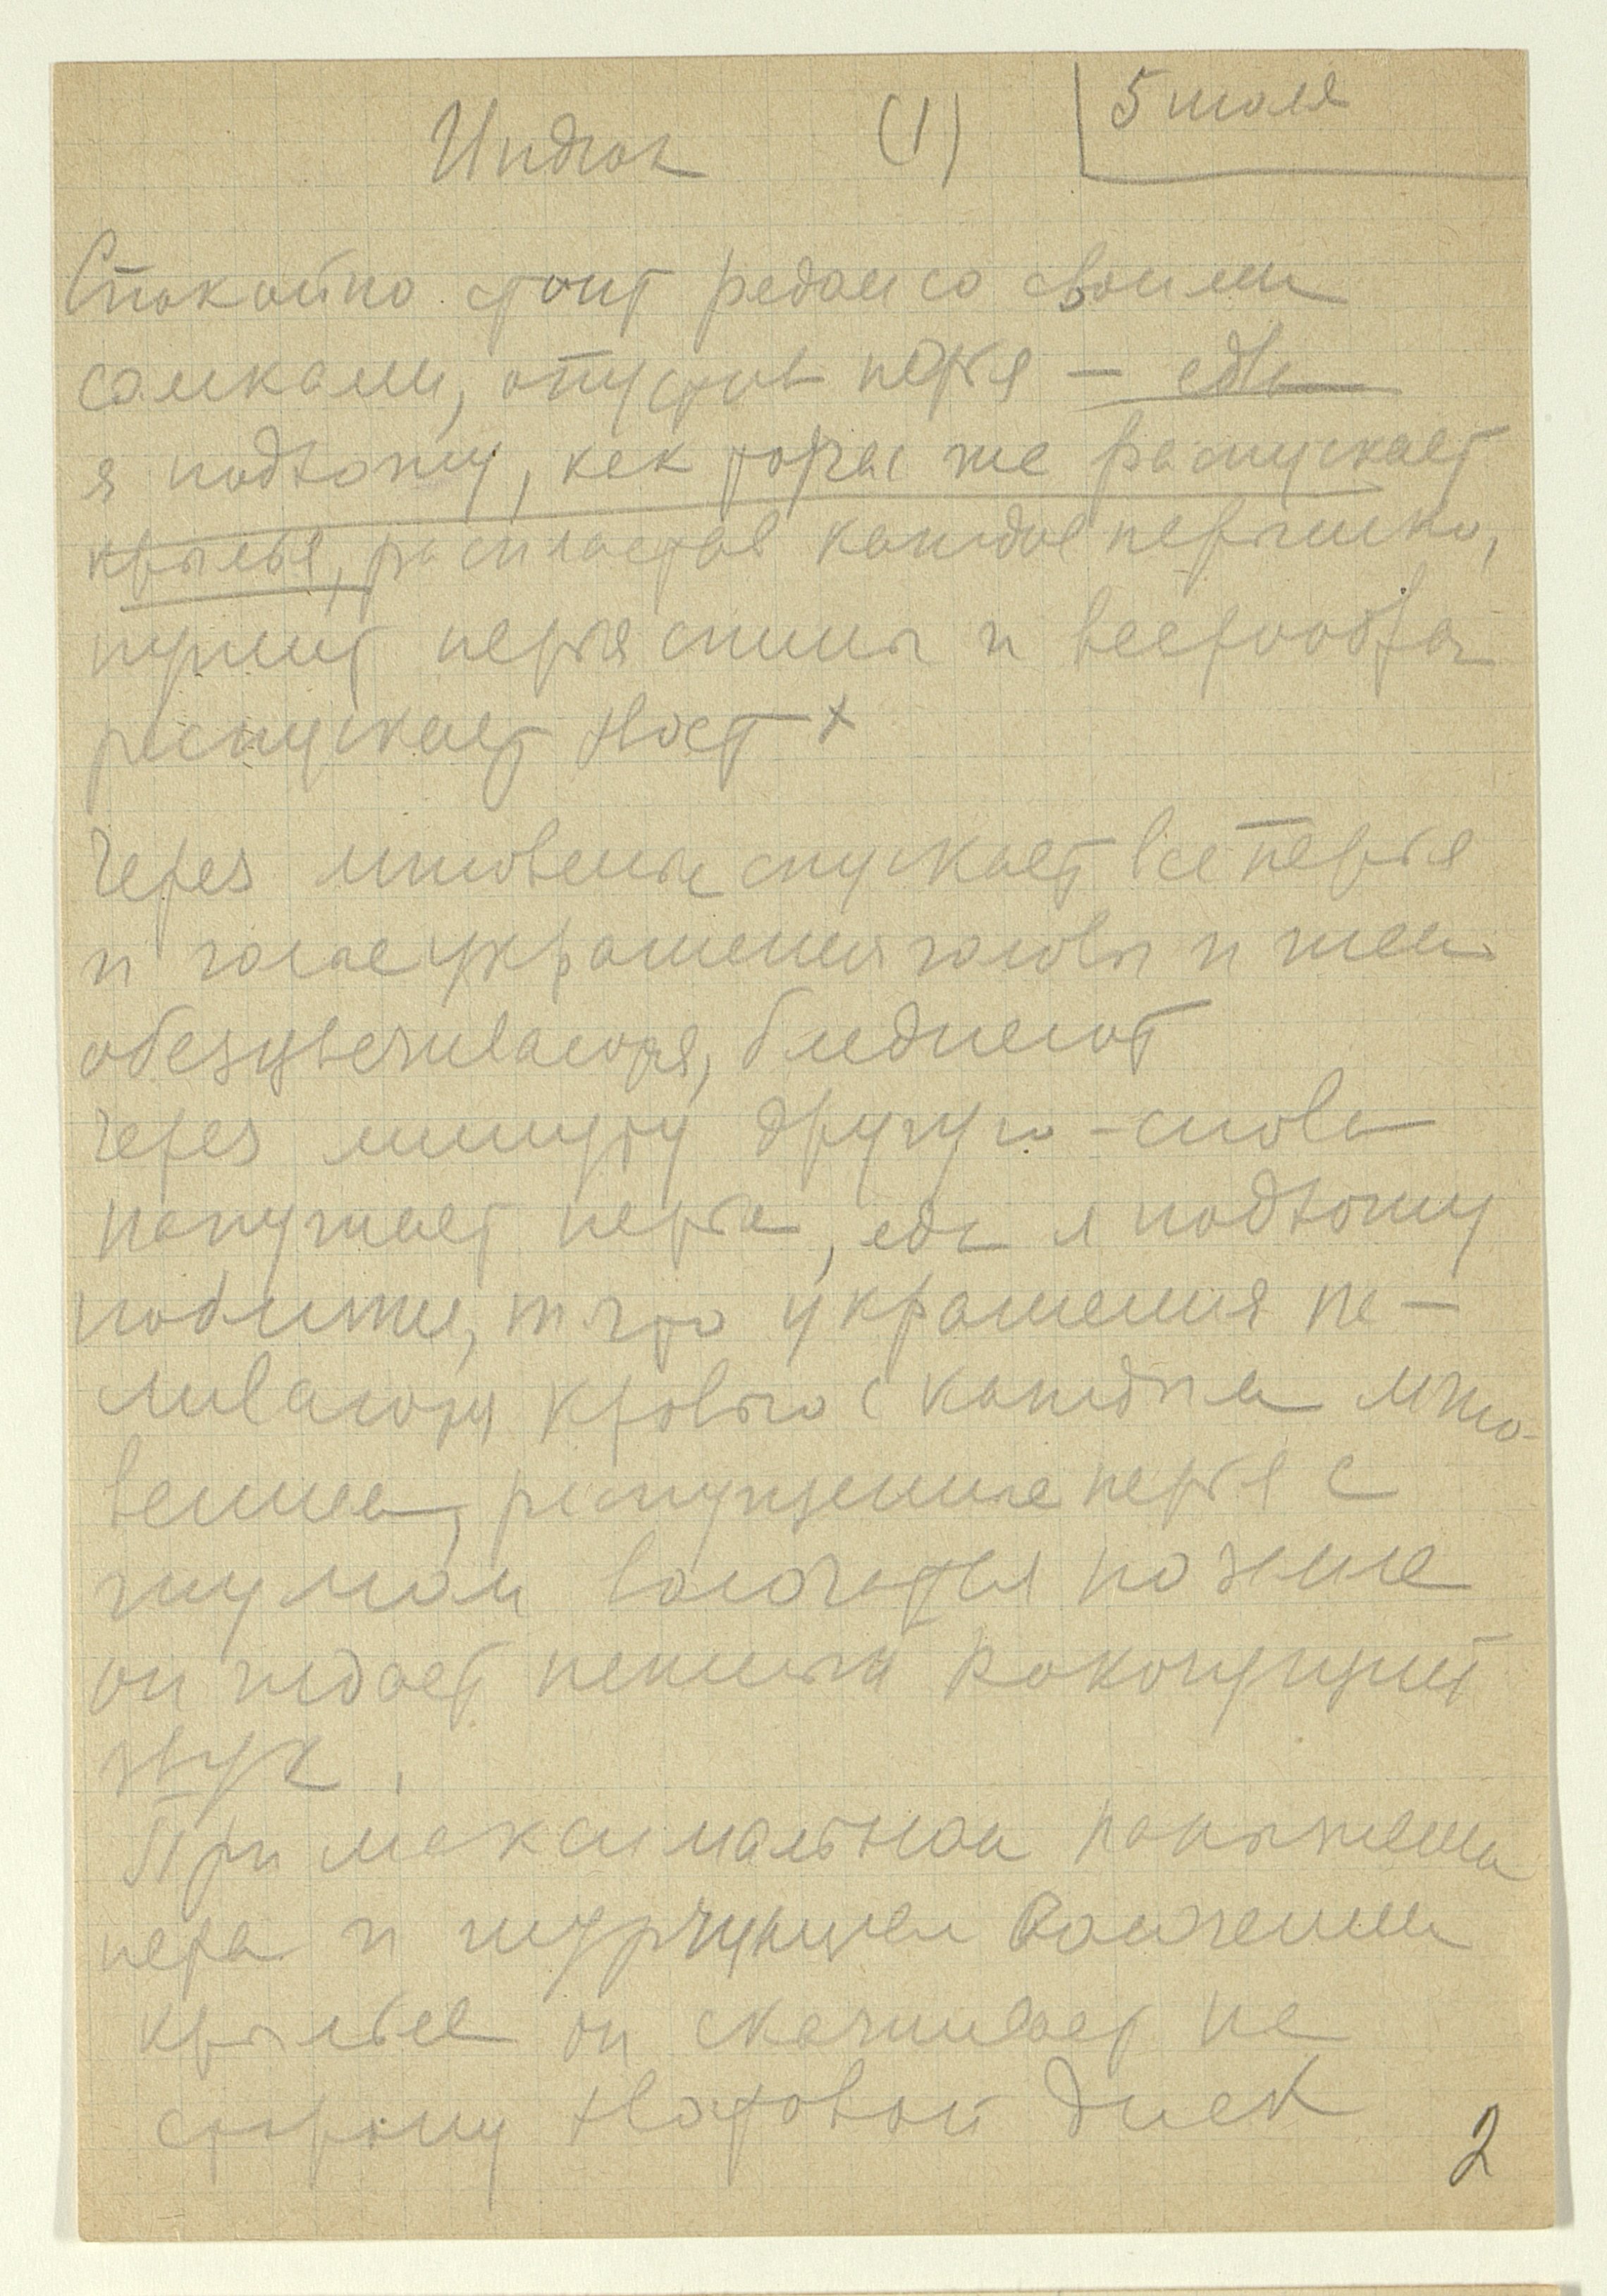 Индюк (1) 5 июля
Спокойно стоит рядом со своими
самками, опустив перья — едва
я подхожу, как тотчас же распускает
крылья, распластав каждое перышко,
пушит перья спины и веерообраз
распускает хвост +
Через мгновенье спускает все перья
и голые украшения головы и шеи
обезцвечиваются, бледнеют
Через минуту другую - снова
напужает перья, едва я подхожу
поближе, и что украшения на-
ливаются кровью с каждым мгно-
вением, распущенные перья с
шумом волочатся по земле
он издает нежный рокочущий
звук.
При максимальном напыжении
пера и шуршащем волочении
крыльев он скашивает на
сторону хвостовой диск
2